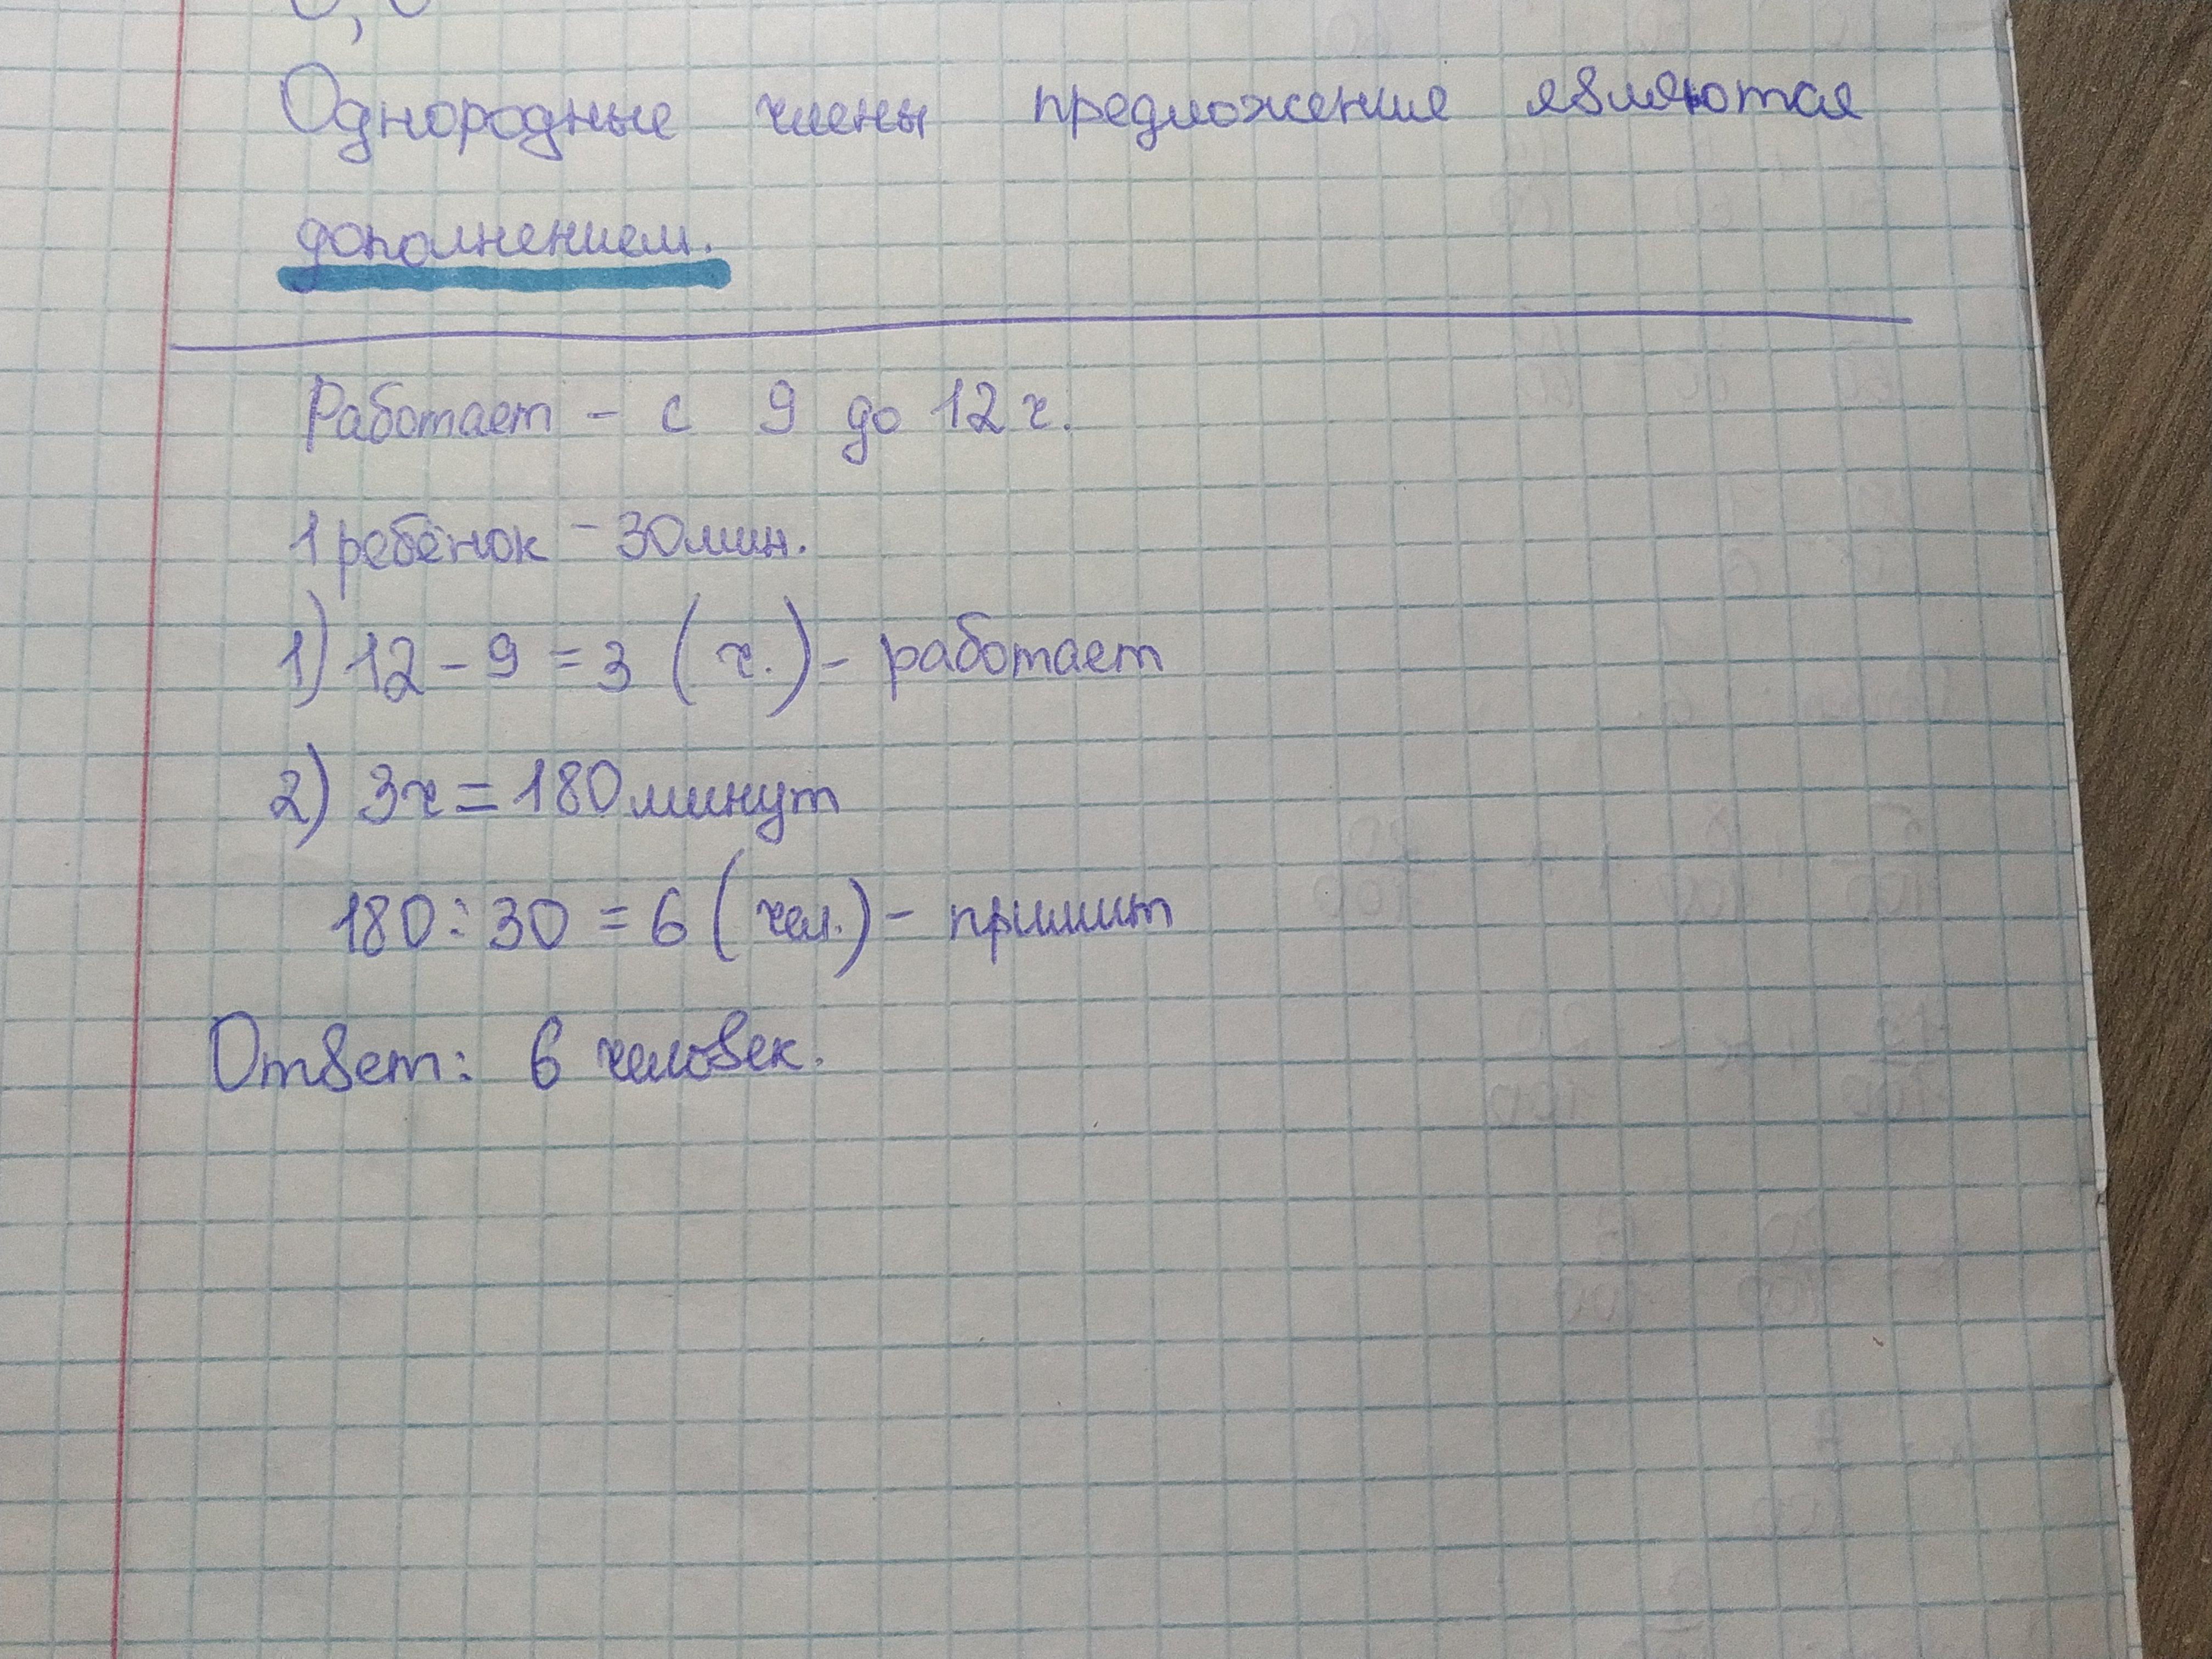 Однородные члены предложения являются
дополнением.
Работает - с 9 до 12 ч.
1 ребёнок - 30 мин.
1) 12 - 9 = 3 (ч.) - работает
2) 3ч = 180 минут
180 : 30 = 6 (чел.) - примит
Ответ: 6 человек.